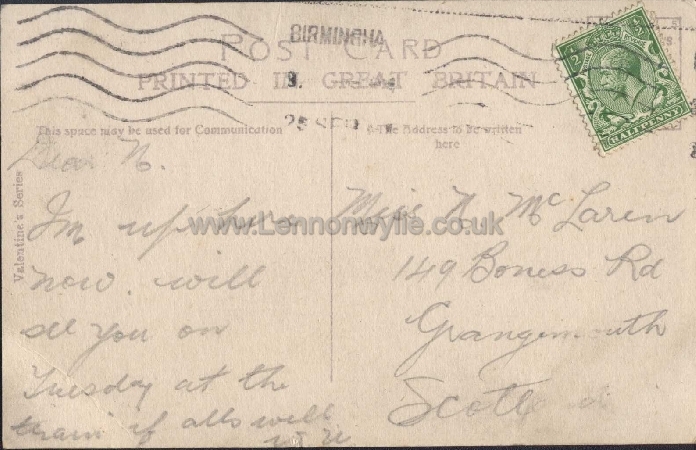 BIRMINGHA
POST CARD
PRINTED IN GREAT BRITAIN
HALFPENNY
This space may be used for Communication
The Address to be written
here
Valentine's Series
Dear N.
Im up here
now. will
see you on
Tuesday at the
train if alls well
Miss N McLaren
149 Boness Rd
Grangemouth
Scotl
www.Lennonwylie.co.uk